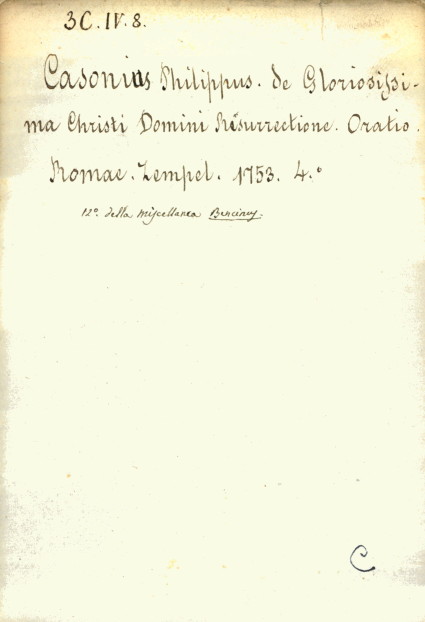 3C.IV.8.
Casonius Philippus. de Gloriosissi-
ma Christi Domini Resurrectione. Oratio.
Romae. Zempel. 1753. 4.°
12°. della Miscellanea
C